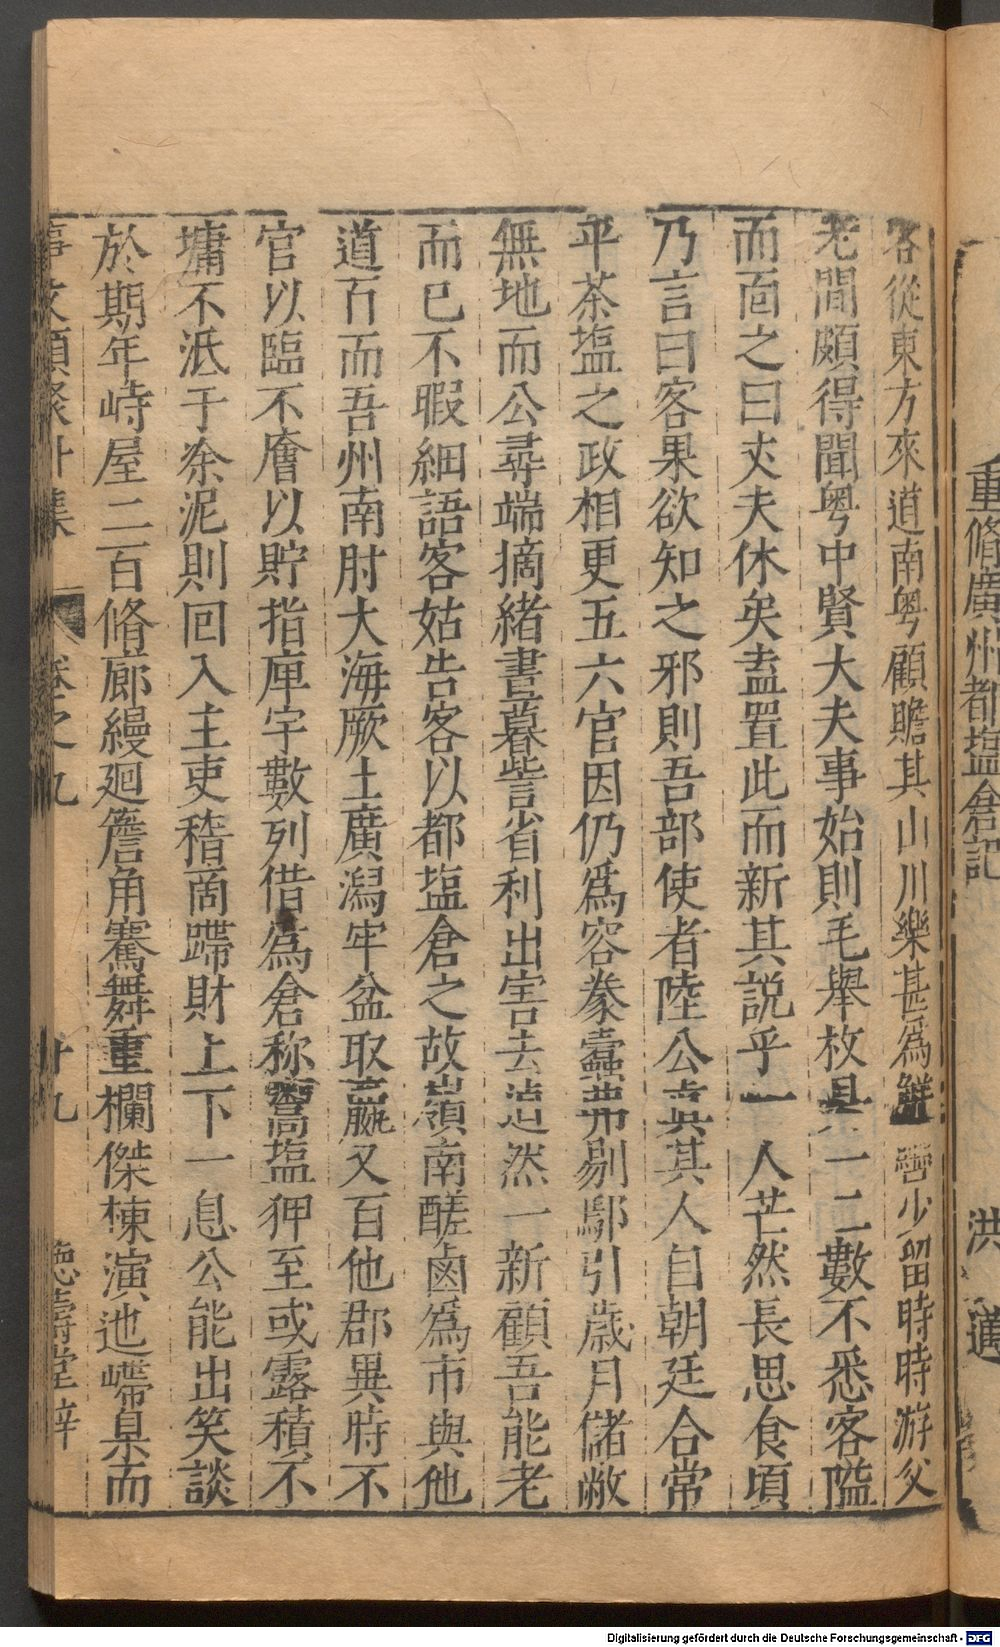 重脩廣州都塩倉記 洪适
客從東方來道南粤顧瞻其山川樂甚爲鮮轡少留時時游父
老間頗得聞粤中賢大夫事始則毛舉枚具一二數不悉客隘
而卣之曰丈夫休矣盍置此而新其説乎一人芒然長思食頃
乃言曰客果欲知之邪則吾部使者陸公其人自朝廷合常
平茶塩之政相更五六官因仍爲容豢蠹茀剔鄢引歲月儲敝
無地而公尋端摘緒晝暮訾省利出害去然一新顧吾能老
而已不暇細語客姑告客以都塩倉之故嶺南醝鹵爲市與他
道百而吾州南肘大海厥土廣潟牢盆取贏又百他郡異時不
官以臨不廥以貯指厙宇數列借爲倉称鬻塩狎至或露積不
墉不泜于涂泥則回入主吏稽啇蹛財上下一息公能出笑談
於期年峙屋二百脩廊縵廻簷角騫舞重欄傑棟演迆嵽臬而
事文類聚外集 卷之九 廿九 德壽堂梓
Digitalisierung gefördert durch die Deutsche Forschungsgemeinschaft - DFG